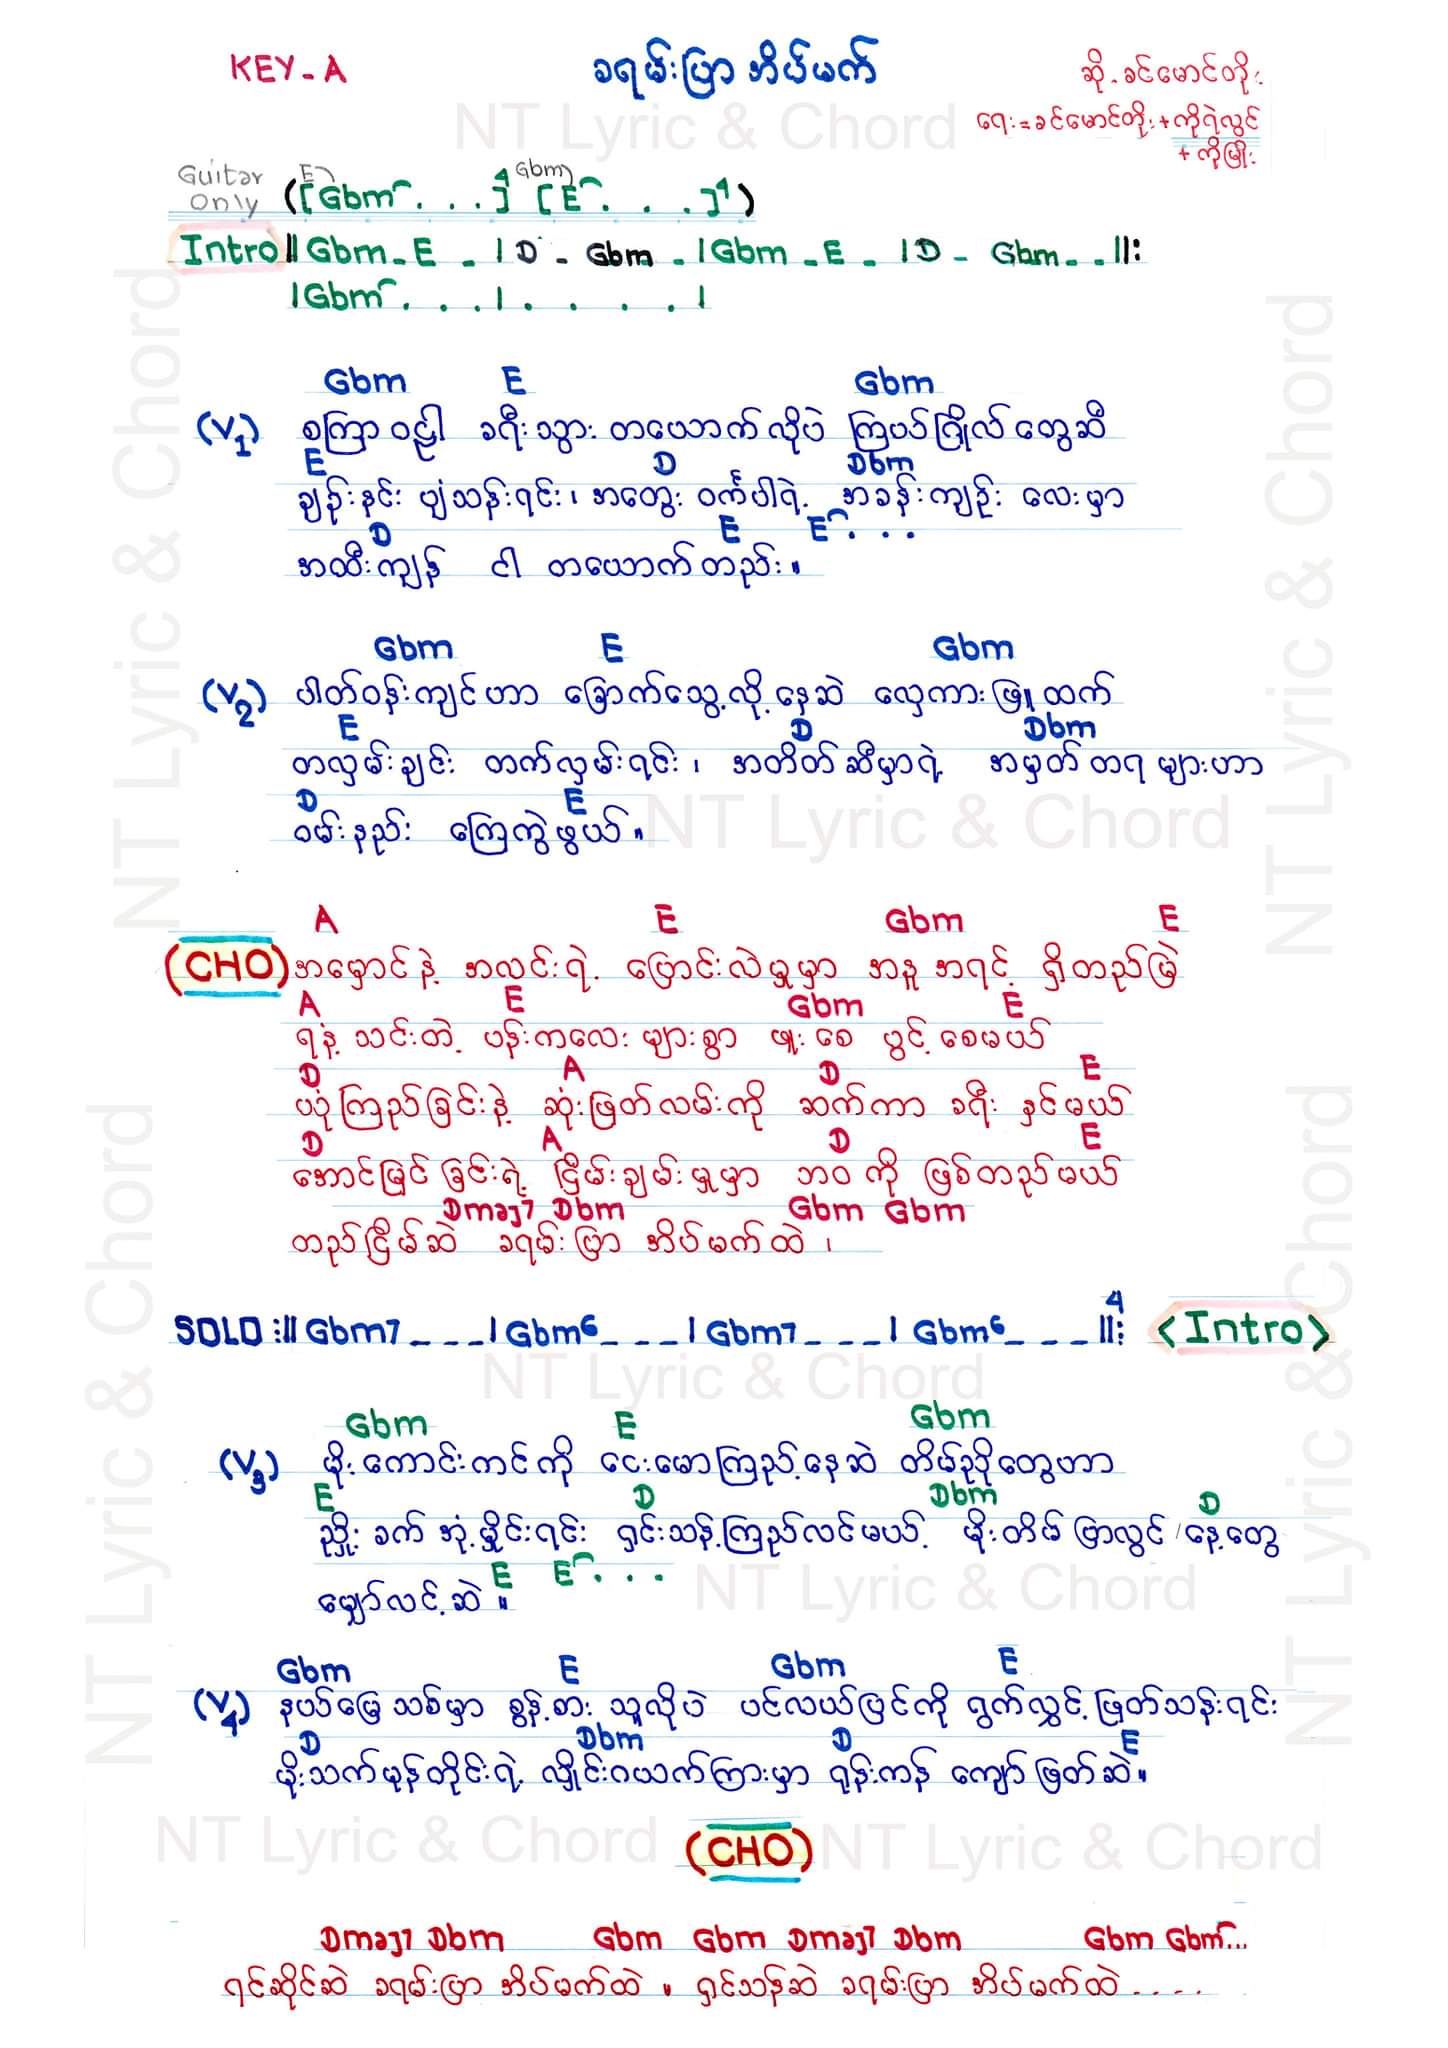 KEY-A
ခရမ်းပြာအိပ်မက်
ဆို-ခင်မောင်တိုး
ရေး=ခင်မောင်တိုး+ကိုရဲလွင်
+ကိုမြိုး
NT Lyric & Chord
Guitar Only
E Gbm
([Gbm . . .]4 [E . . .]4)
Intro ||Gbm-E -|D - Gbm -|Gbm -E -|D - Gbm--||:
|Gbm . . .| . . . .|
Gbm E Gbm
(V1) စကြာဝဠာ ခရီးသွား တယောက်လိုပဲ ကြယ်ဂြိုလ်တွေဆီ
E D Dbm
ချဉ်းနင်း ပျံသန်းရင်း၊ အတွေး ဝင်္ကပါရဲ့ အခန်းကျဉ်း လေးမှာ
D E E . . .
အထီးကျန် ငါ တယောက်တည်း။
Gbm E Gbm
(V2) ပါတ်ဝန်းကျင်ဟာ ခြောက်သွေ့လို့နေဆဲ လှေကားဖြူထက်
E D Dbm
တလှမ်းချင်း တက်လှမ်းရင်း၊ အတိတ်ဆီမှာရဲ့ အမှတ်တရ များဟာ
D E
ဝမ်းနည်း ကြေကွဲဖွယ်။
NT Lyric & Chord
A E Gbm E
(CHO) အမှောင်နဲ့ အလင်းရဲ့ ပြောင်းလဲမှုမှာ အနူအရင့် ရှိတည်မြဲ
A E Gbm E
ရနံ့သင်းတဲ့ ပန်းကလေး များစွာ ဖူးစေ ပွင့်စေမယ်
D A D E
ယုံကြည်ခြင်းနဲ့ ဆုံးဖြတ်လမ်းကို ဆက်ကာ ခရီးနှင်မယ်
D A D E
အောင်မြင်ခြင်းရဲ့ ငြိမ်းချမ်းမှုမှာ ဘဝကို ဖြစ်တည်မယ်
Dmaj7 Dbm Gbm Gbm
တည်ငြိမ်ဆဲ ခရမ်းပြာ အိပ်မက်ထဲ၊
SOLO :||Gbm7 _ _ _|Gbm6 _ _ _|Gbm7 _ _ _|Gbm6 _ _ _||: 4 <Intro>
NT Lyric & Chord
Gbm E Gbm
(V3) မိုးကောင်းကင်ကို ငေးမောကြည့်နေဆဲ တိမ်ညိုတွေဟာ
E D Dbm D
ညှိုးခက်အုံ့မှိုင်းရင်း ရှင်းသန့်ကြည်လင်မယ့် မိုးတိမ်ပြာလွင်/နေ့တွေ
E E . . .
မျှော်လင့်ဆဲ။
NT Lyric & Chord
Gbm E Gbm E
(V4) နယ်မြေသစ်မှာ စွန့်စား သူလိုပဲ ပင်လယ်ပြင်ကို ရွက်လွှင့်ဖြတ်သန်းရင်း
D Dbm D E
မိုးသက်မုန်တိုင်းရဲ့ လှိုင်းဂယက်ကြားမှာ ရုန်းကန် ကျော်ဖြတ်ဆဲ။
NT Lyric & Chord
(CHO)
NT Lyric & Chord
Dmaj7 Dbm Gbm Gbm Dmaj7 Dbm Gbm Gbm...
ရင်ဆိုင်ဆဲ ခရမ်းပြာ အိပ်မက်ထဲ။ ရှင်သန်ဆဲ ခရမ်းပြာ အိပ်မက်ထဲ....
NT Lyric & Chord
NT Lyric & Chord
NT Lyric & Chord
NT Lyric & Chord